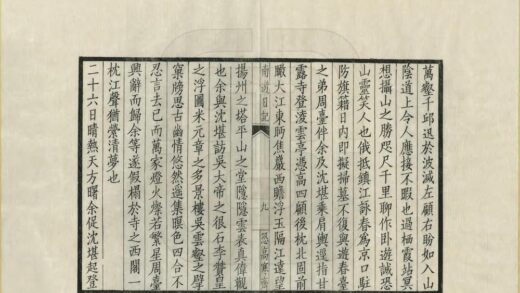 萬壑千邱退於波減左顧右盼如入山
陰道上令人應接不暇也過棲霞站冥
想攝山之勝咫尺千里聊作臥遊誠恐
山靈笑人也俄抵鎮江詠春為京口駐
防旗籍日内即擬掃墓不復與遊春臺
之弟周臺伴余及沈堪乘肩輿逕指甘
露寺登淩雲亭憑高四顧後枕北固前
瞰大江東眄焦巖西瞻浮玉隔江遠望
南遊日記 九 恐高寒齋
揚州之塔平山之堂隱隱雲表真偉觀
也余與沈堪訪吳大帝之很石李贊皇
之浮圖米元章之多景樓吳雲壑之擘
窠牓思古幽情悠然遥集暝色四合不
忍言去已而萬家燈火燦若繁星周臺
興辭而歸余等遂假榻於寺之西閣一
枕江聲猶縈清夢也
二十六日晴熱天方曙余促沈堪起登